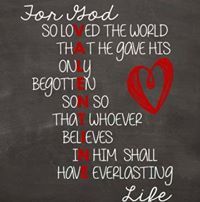 For God
SO LOVED THE WORLD
THAT HE GAVE HIS
ONLY
BEGOTTEN
SON SO
THAT WHOEVER
BELIEVES
IN HIM SHALL
HAVE EVERLASTING
Life